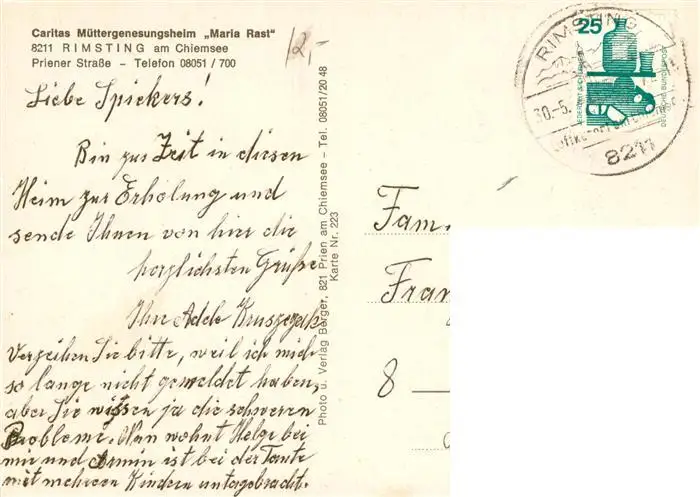 Caritas Müttergenesungsheim „Maria Rast"
8211 RIMSTING am Chiemsee
Priener Straße - Telefon 08051/700
12,-
Liebe Spickers!
Bin zur Zeit in diesen
Heim zur Erholung und
sende Ihnen von hier die
herzlichsten Grüße
Ihre Adele
Verzeihen Sie bitte, weil ich mich
so lange nicht gemeldet haben,
aber Sie wissen ja die schweren
Probleme. Nun wohnt Helge bei
mir und Armin ist bei der Tante
mit mehreren Kindern untagebracht.
Photo u. Verlag Berger, 821 Prien am Chiemsee - Tel. 08051/20 48
Karte Nr. 223
RIMSTING
30.-5.
8211
25
JEDERZEIT SICHERHEIT
DEUTSCHE BUNDESPOST
Fam
Fran
8